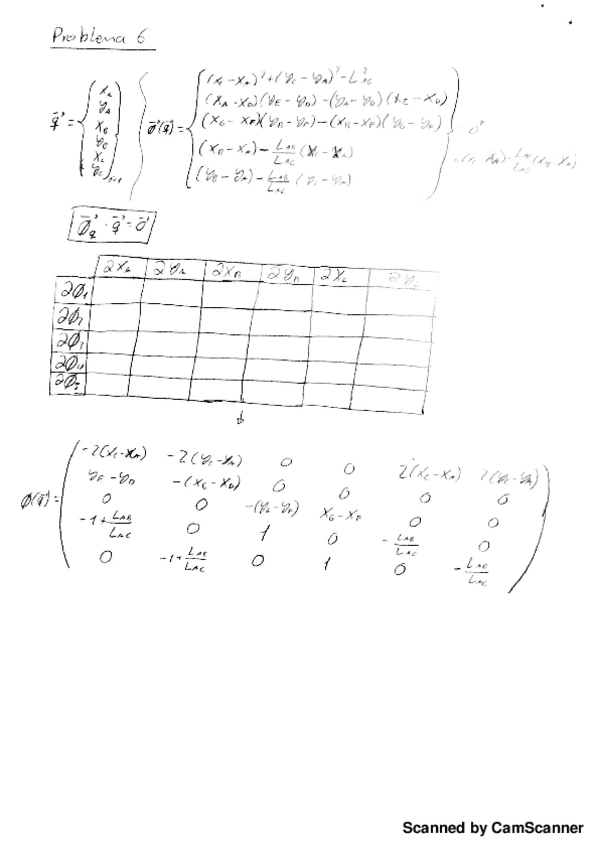 Problema 6
q = { x_A y_A x_B y_B x_C y_C }
Φ(q) = { (x_C - x_A)² + (y_C - y_A)² - L²_AC
(x_A - x_D)(y_E - y_D) - (y_A - y_D)(x_E - x_D)
(x_G - x_F)(y_B - y_F) - (x_B - x_F)(y_G - y_F)
(x_B - x_A) - L_AB/L_AC (x_C - x_A)
(y_B - y_A) - L_AB/L_AC (y_C - y_A) } = 0
Φ_q · q = 0
∂x_A ∂y_A ∂x_B ∂y_B ∂x_C ∂y_C
∂Φ_1
∂Φ_2
∂Φ_3
∂Φ_4
∂Φ_5
-2(x_C - x_A) -2(y_C - y_A) 0 0 2(x_C - x_A) 2(y_C - y_A)
y_E - y_D -(x_E - x_D) 0 0 0 0
Φ(q) = 0 0 -(y_G - y_F) x_G - x_F 0 0
-1 + L_AB/L_AC 0 1 0 - L_AB/L_AC 0
0 -1 + L_AB/L_AC 0 1 0 - L_AB/L_AC
Scanned by CamScanner